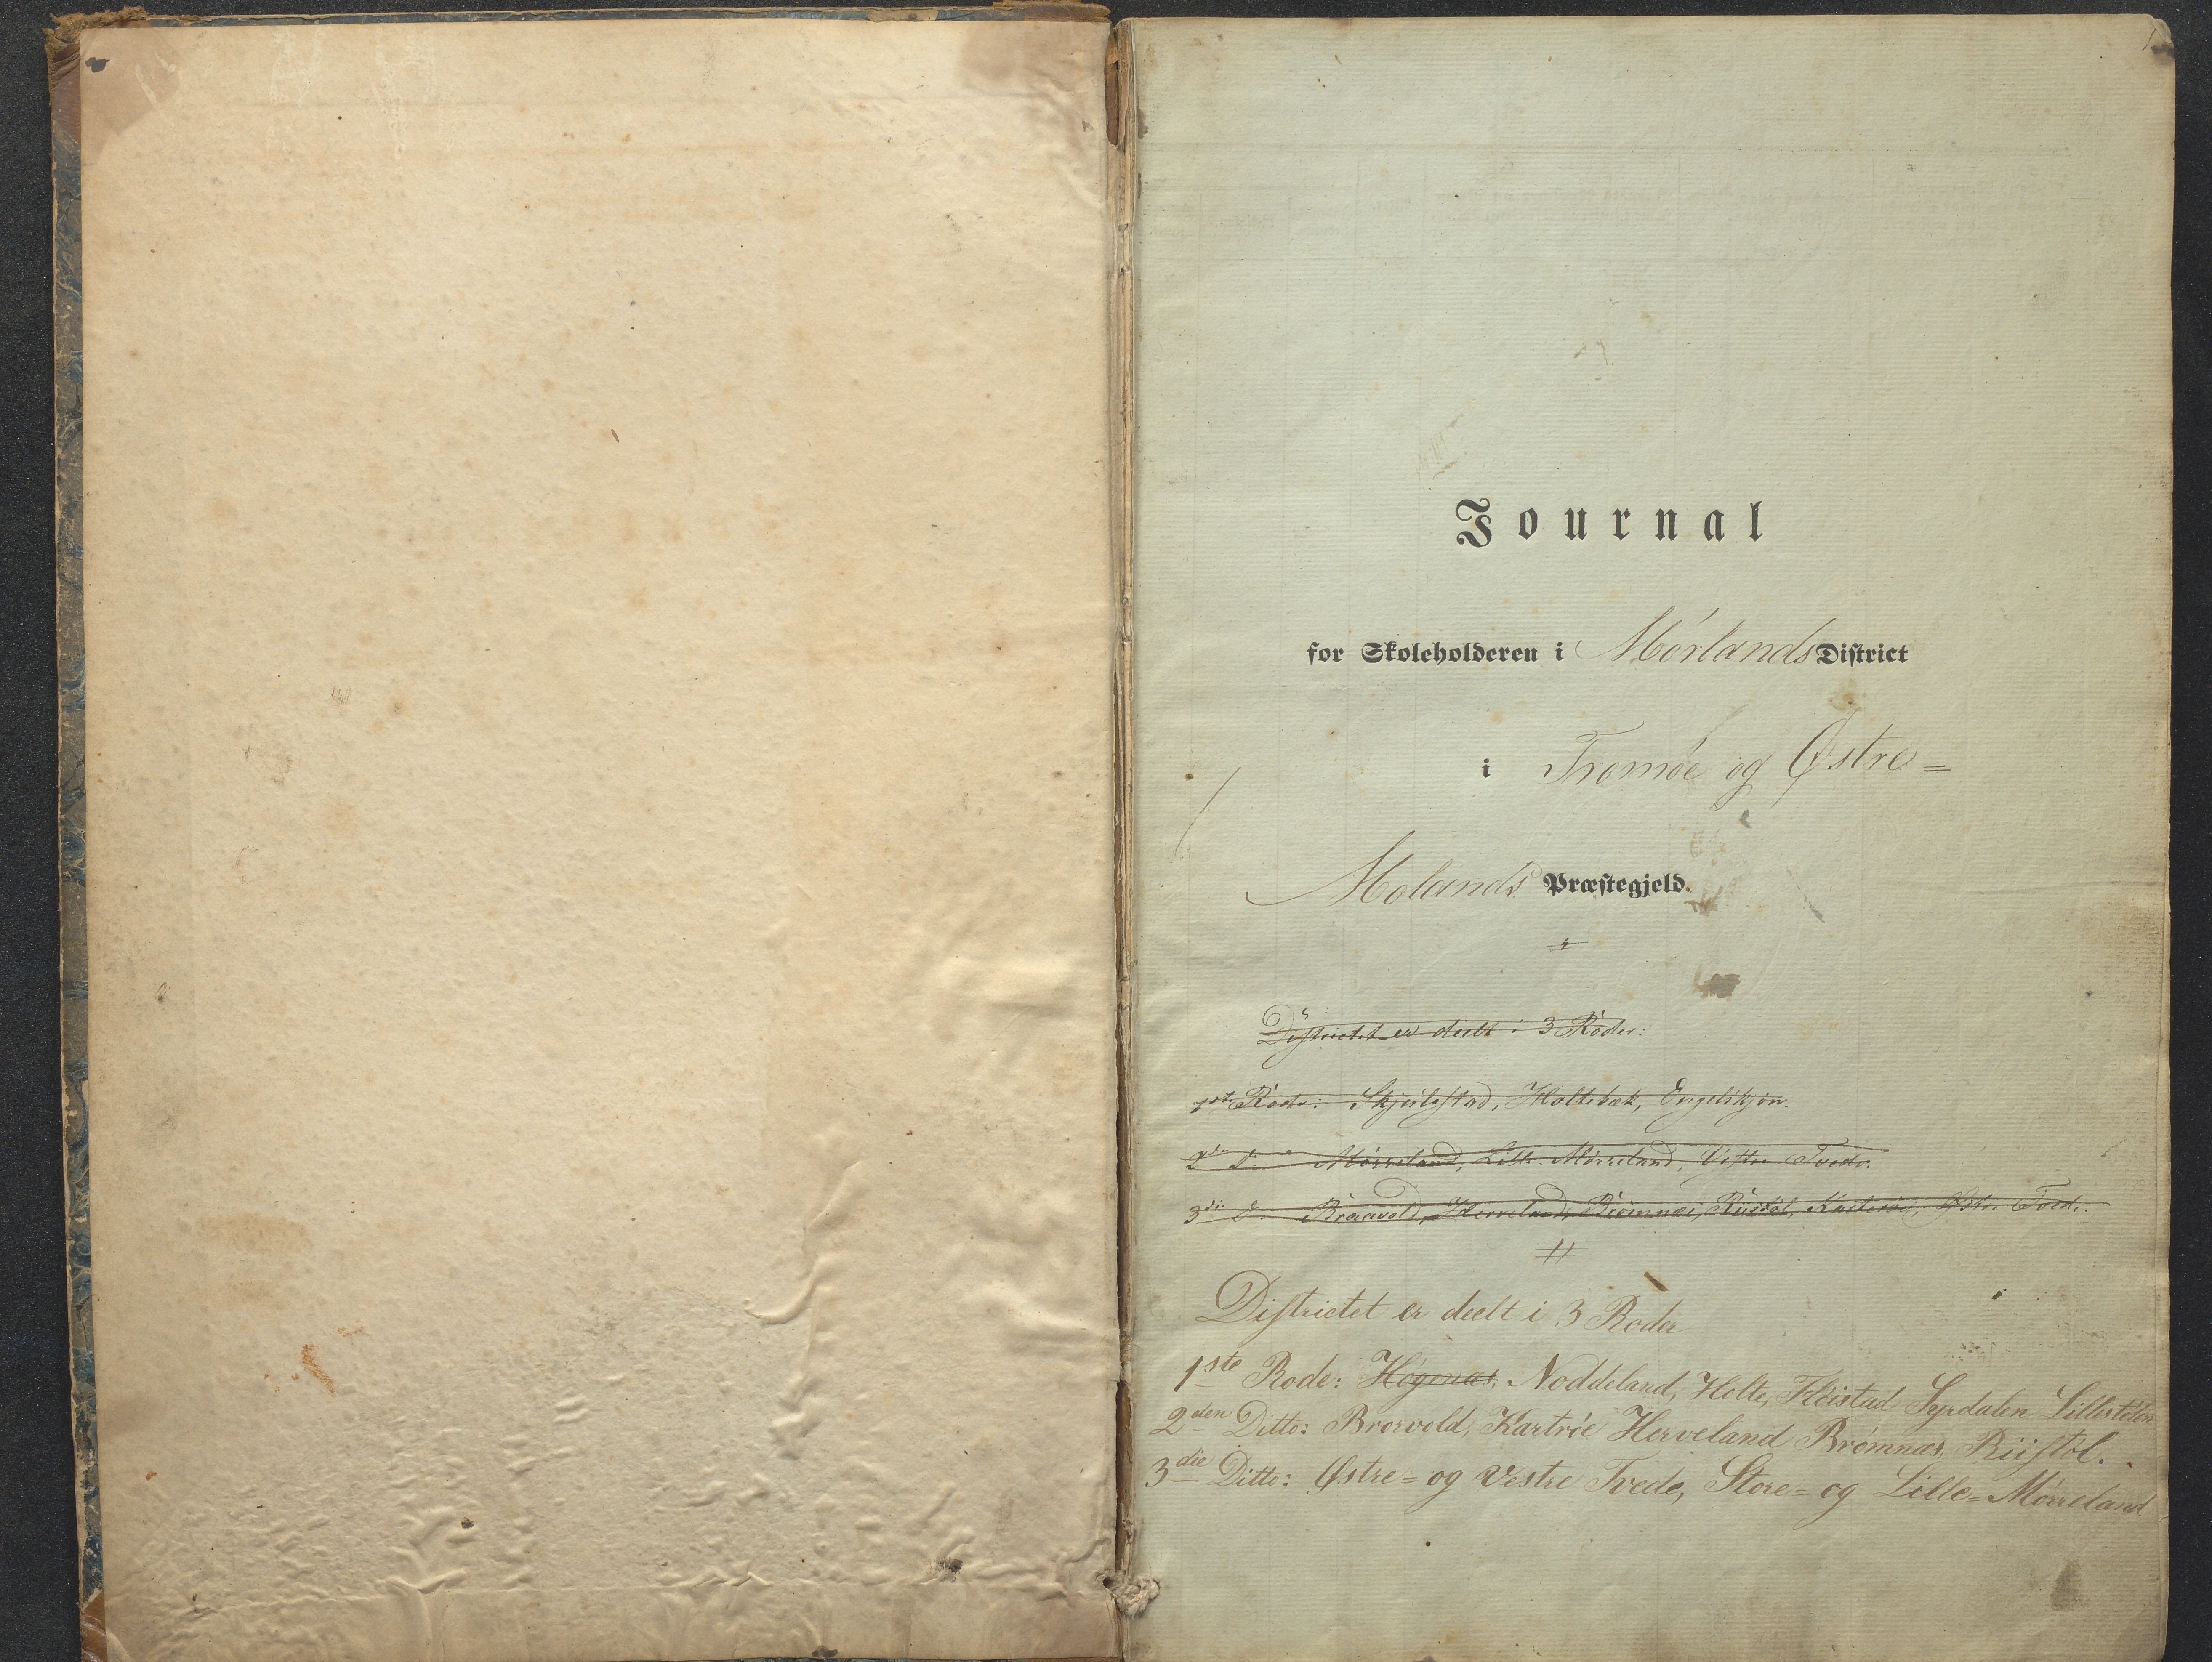 1
Journal
for Skoleholderen i Mørlands District
i Tromøe og Østre=
Molands Præstegjeld.
Districtet er deelt i 3 Roder:
1ste Rode: Skjulestad, Holtebæk, Engelskjøn.
2den do Mørreland, Lille Mørreland, Vestre Tvede.
3die do Brarvold, Herveland, Brømnæs, Riistøl, Kartrøe, Østre Tvede.
Districtet er deelt i 3 Roder
1ste Rode: Høgenæs, Noddeland, Holte, Fleistad Syrdalen Lillestølen
2den Ditto: Brorvold, Kartrøe Herveland Brømnæs, Riistøl.
3die Ditto: Østre= og Vestre Tvede, Store= og Lille=Mørreland